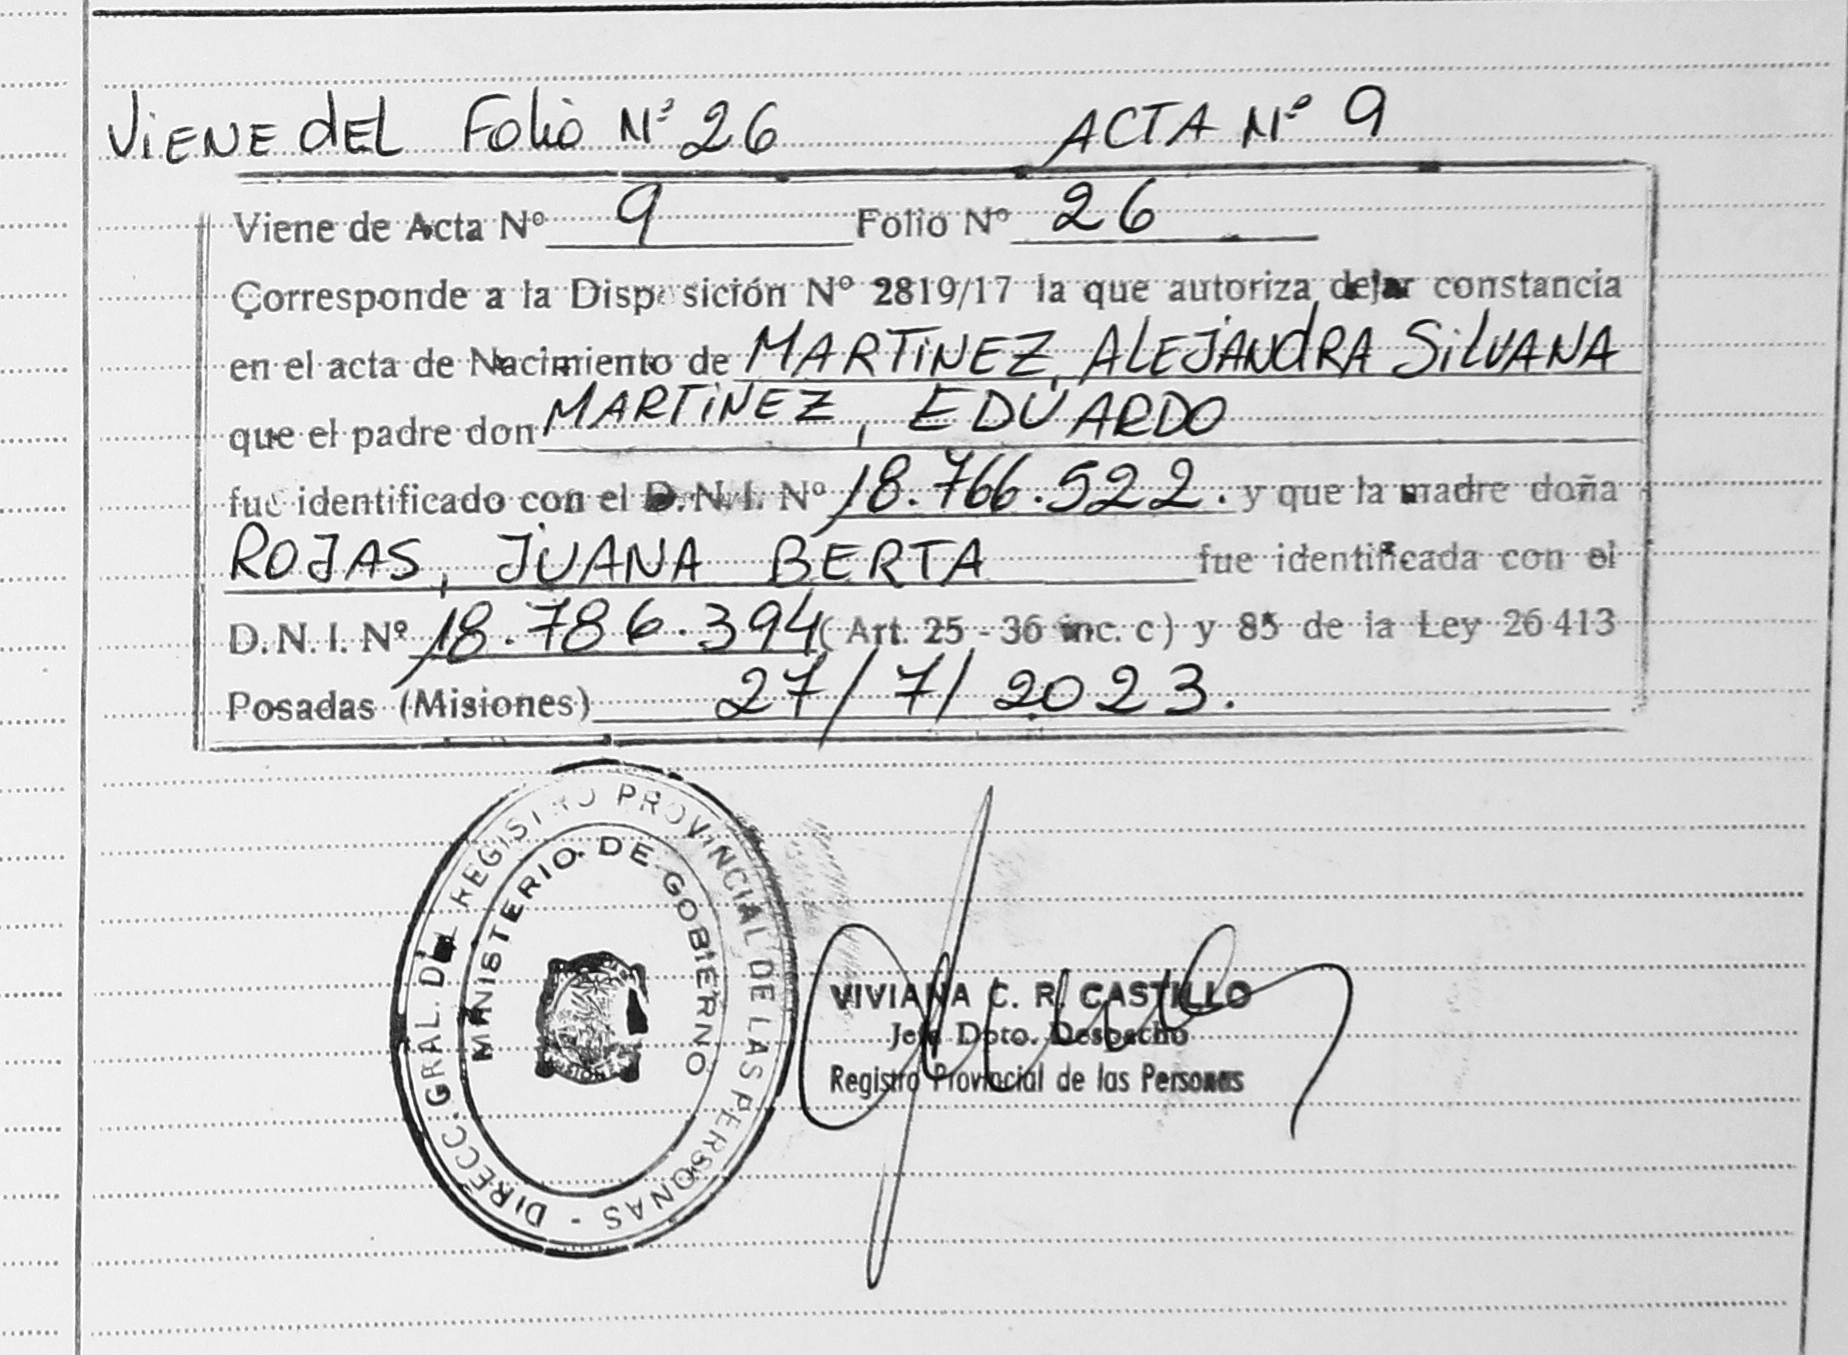 ViENE dEL Folio Nº 26 ACTA Nº 9
Viene de Acta Nº 9 Folio Nº 26
Corresponde a la Disposición Nº 2819/17 la que autoriza dejar constancia
en el acta de Nacimiento de MARTiNEZ, ALEJANdRA SiLVANA
que el padre don MARTiNEZ, EDUARDO
fue identificado con el D.N.I. Nº 18.766.522. y que la madre doña
ROJAS, JUANA BERTA fue identificada con el
D.N.I. Nº 18.786.394 (Art. 25 - 36 inc. c) y 85 de la Ley 26413
Posadas (Misiones) 27/7/2023.
DIRECC. GRAL. DEL REGISTRO PROVINCIAL DE LAS PERSONAS -
MINISTERIO DE GOBIERNO
MISIONES
VIVIANA C. R. CASTILLO
Jefe Dpto. Despacho
Registro Provincial de las Personas